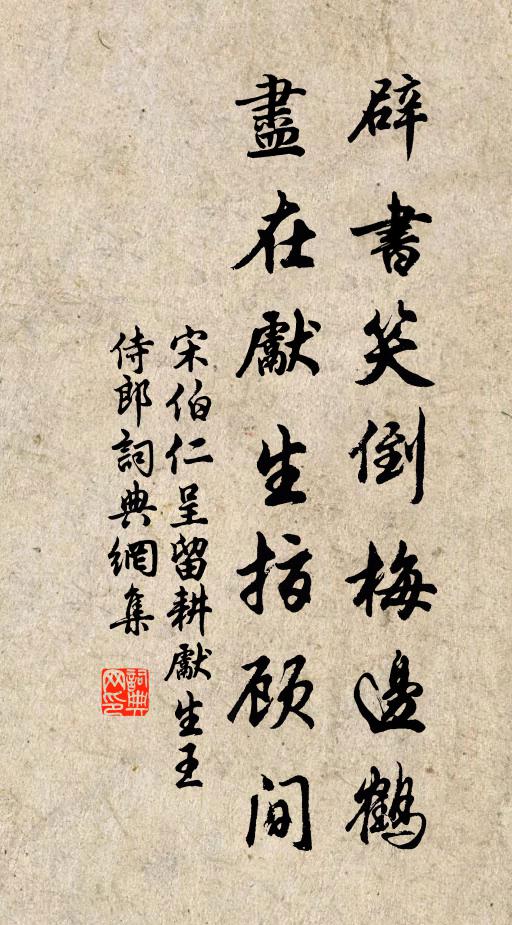 辟書笑倒梅邊鶴
盡在獻生指顾间
宋伯仁呈留耕獻生王
侍郎詞典網集
詞典
网印